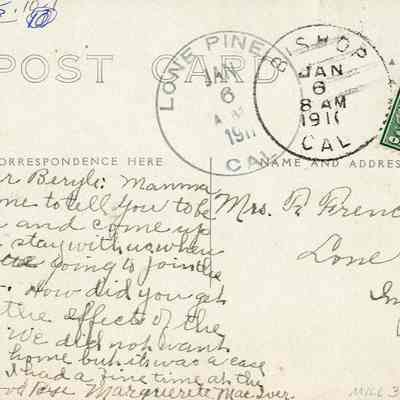 POST CARD
LONE PINE
JAN
6
1911
CAL
BISHOP
JAN
6
8 AM
1911
CAL
CORRESPONDENCE HERE
NAME AND ADDRES
r Beryl: Mamma
me to tell you to be
and come up
stay with us when
are going to join the
. How did you get
the effects of the
We did not want
home but it was a case
I had a fine time at the
Marguerite MacIver
Mrs. R. Frenc
Lone
In
MILL 3